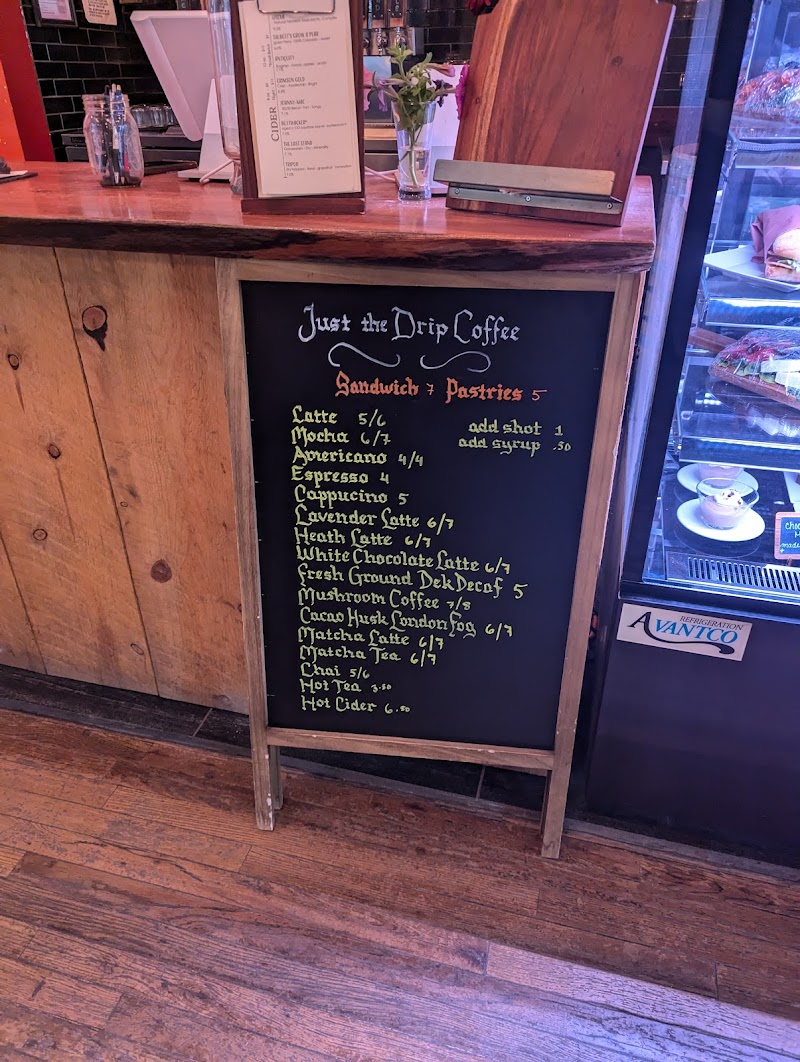 CIDER
ANTIQUITY
CRIMSON GOLD
THE LAST STAND
Just the Drip Coffee
Sandwich 7 Pastries 5
Latte 5/6
Mocha 6/7
Americano 4/4
Espresso 4
Cappucino 5
Lavender Latte 6/7
Heath Latte 6/7
White Chocolate Latte 6/7
Fresh Ground Dek Decaf 5
Mushroom Coffee 7/8
Cacao Husk London Fog 6/7
Matcha Latte 6/7
Matcha Tea 6/7
Chai 5/6
Hot Tea 3.50
Hot Cider 6.50
add shot 1
add syrup .50
REFRIGERATION
AVANTCO